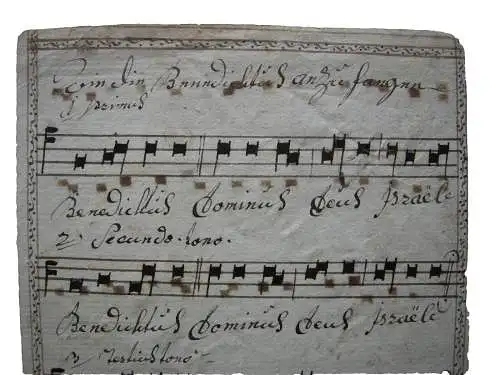 Benedictus anzufangen
1 Primus
Benedicktus Dominus Deus Israële
2. Secundo. tono.
Benedicktus Dominus Deus Israële
3 tertius tono